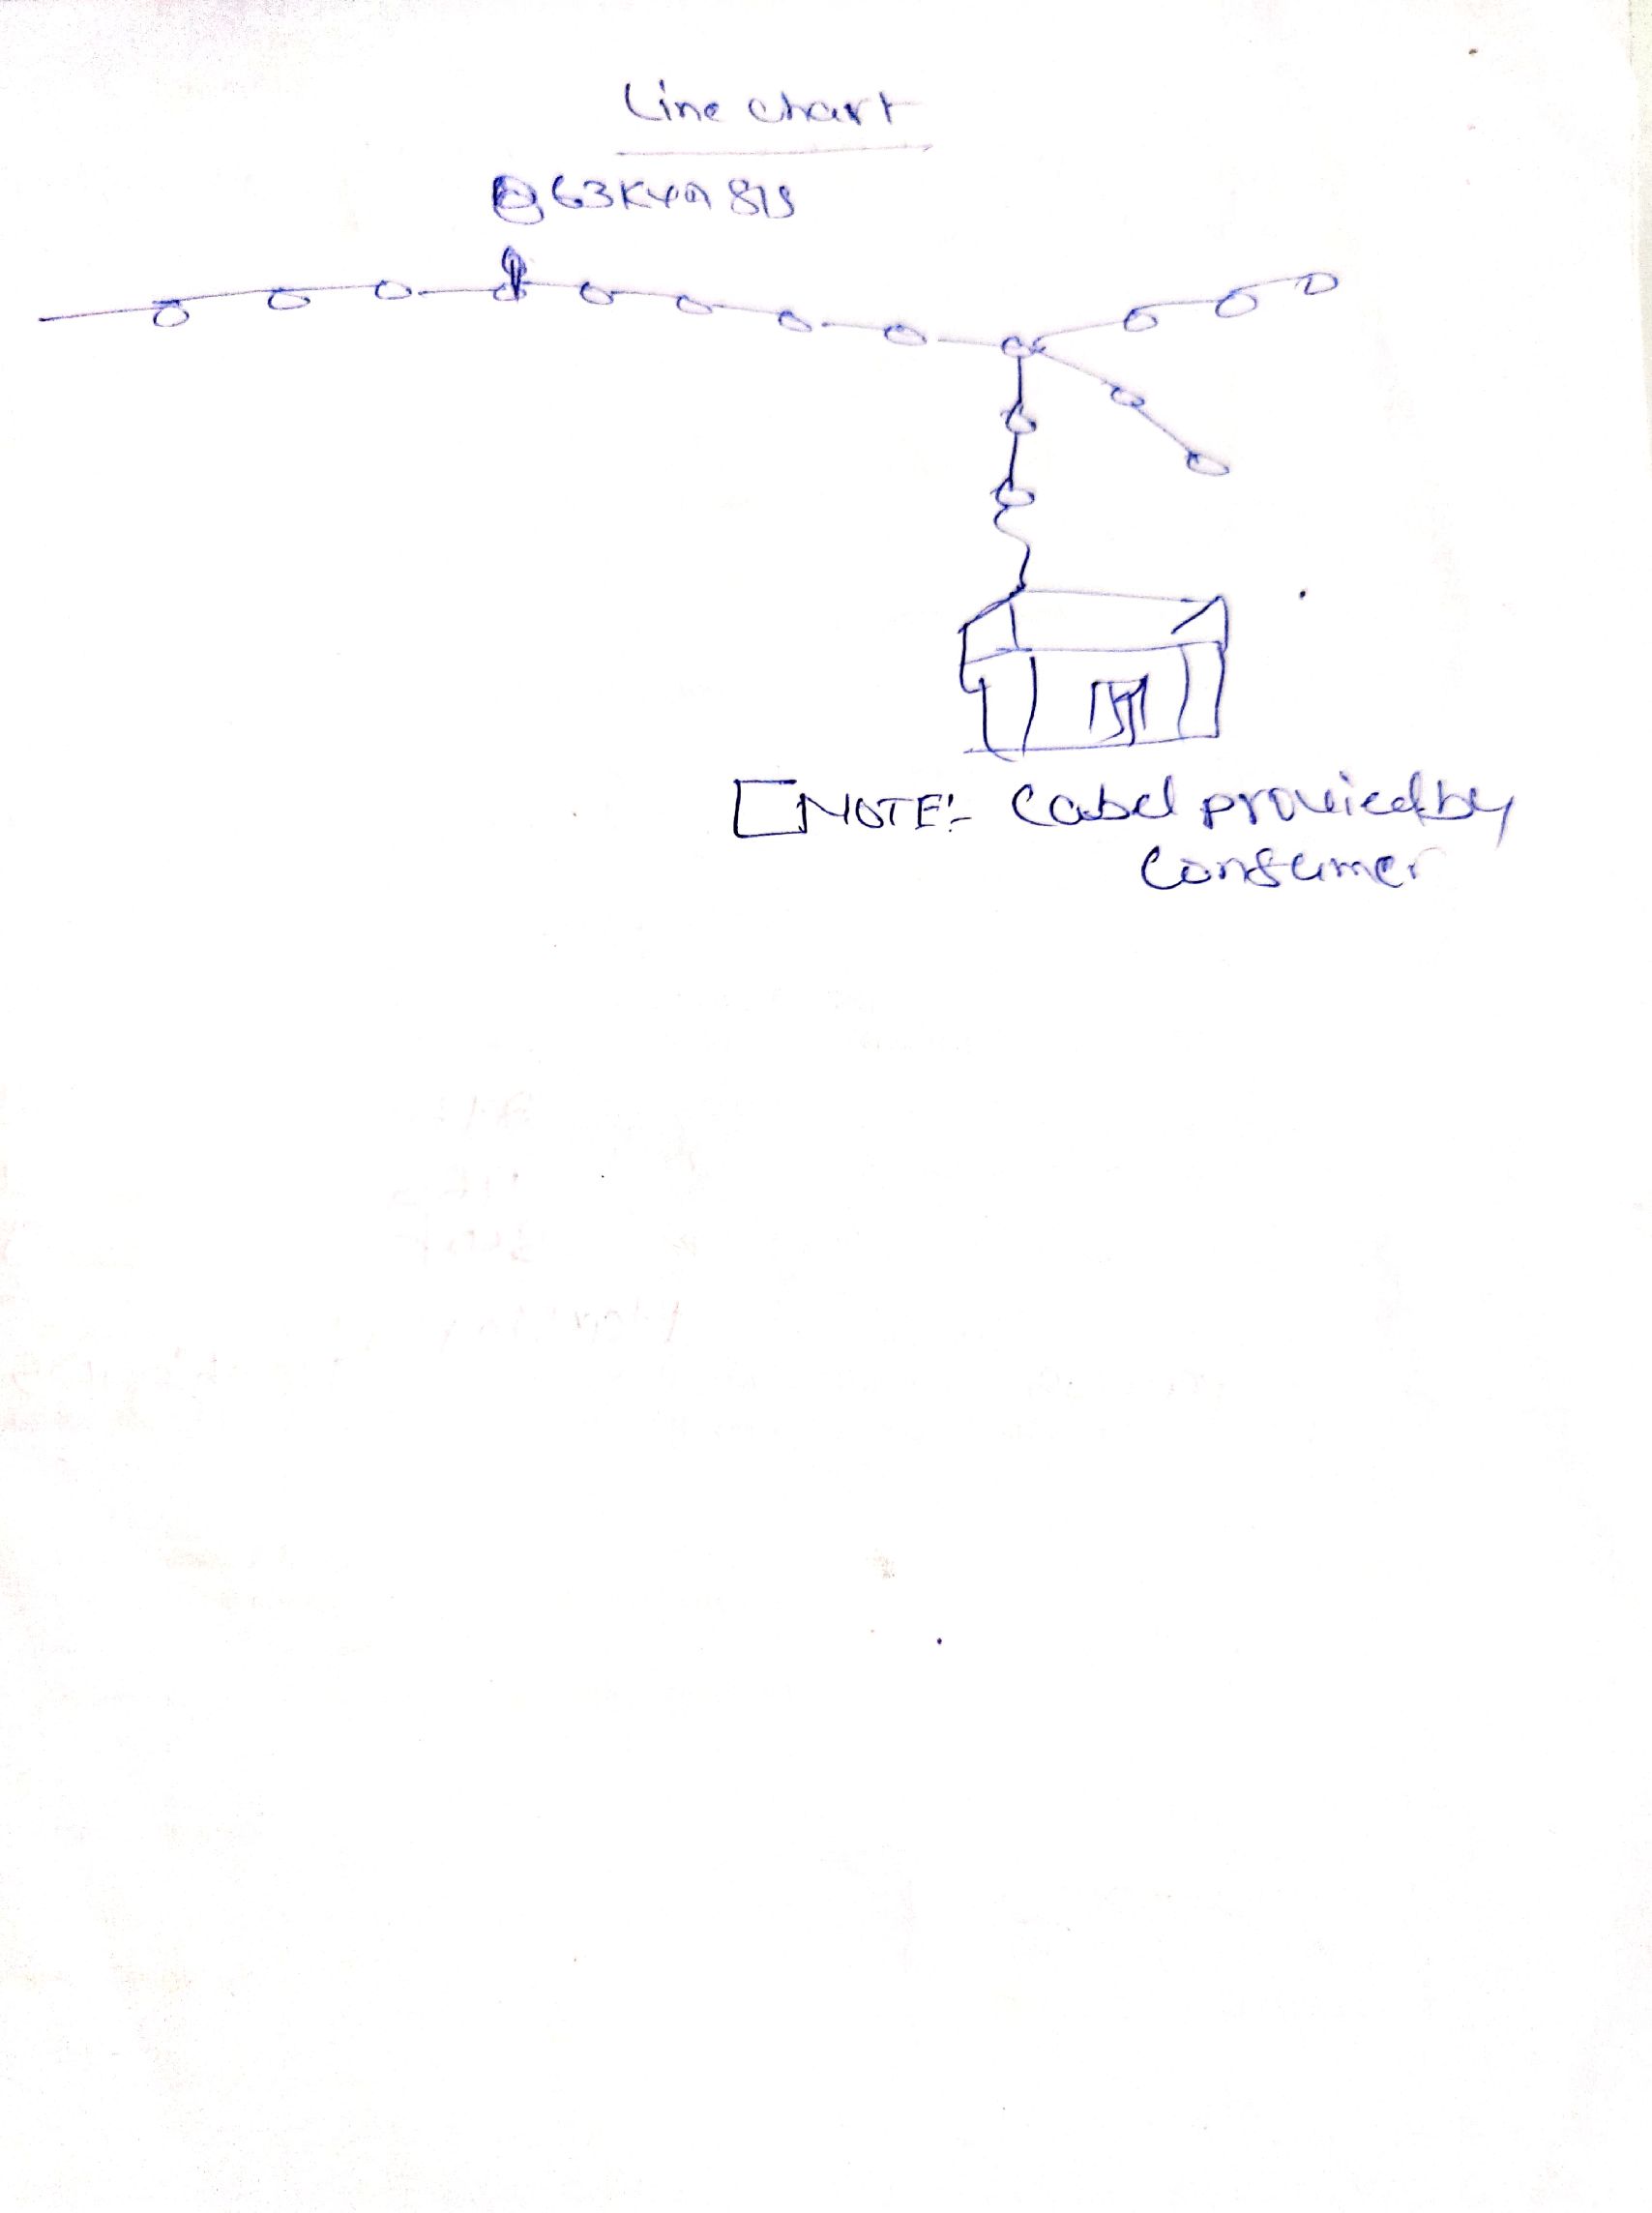 Line chart
63KVA S/S
[NOTE:- Cabel provied by
Consumer